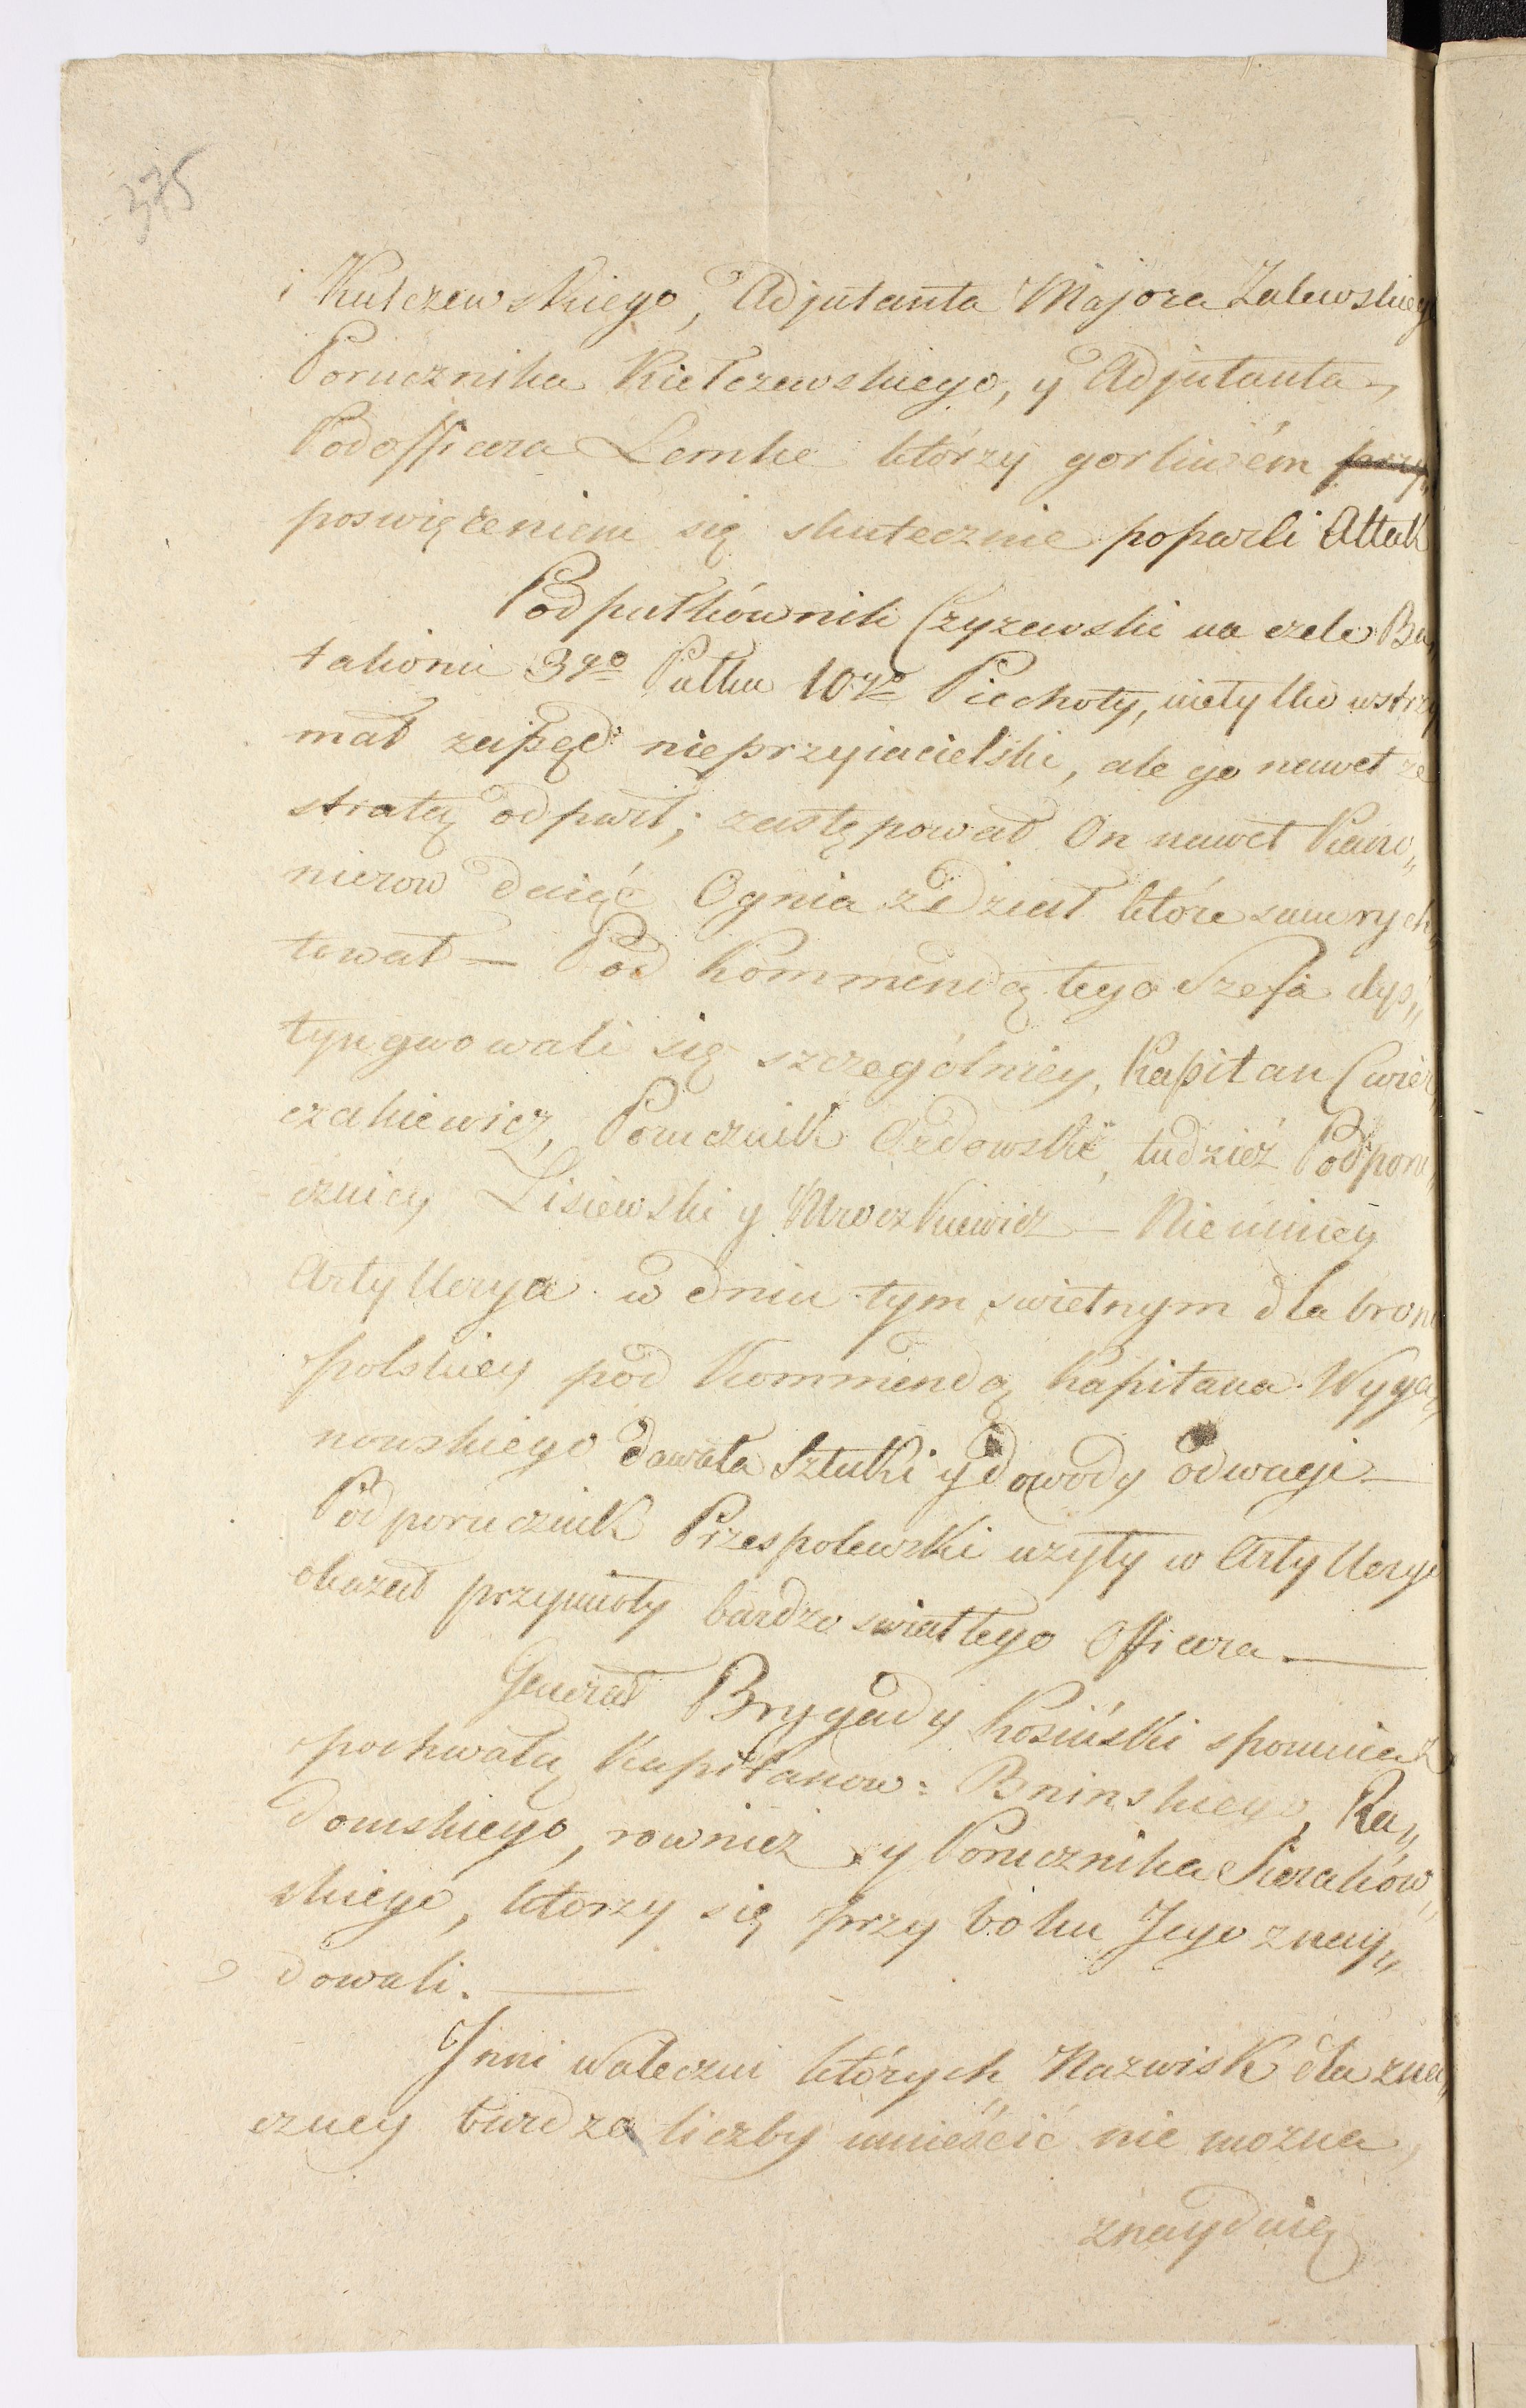 375
i Kulczewskiego, Adjutanta Majora Zalewskiego
Porucznika Kiełczewskiego, y Adjutanta
Podofficera Lemke którzy gorliwém przy„
poswięceniem się skutecznie poparli Attak
Podpułkównik Czyzewski na czele Ba„
talionu 3go Pułku 10go Piechoty, nietylko wstrzy
mał zapęd nieprzyiacielski, ale go nawet ze
stratą odparł; zastępował On nawet Kano„
nierow daiąć Ognia z dział które sam rych„
tował — Pod Kommendą tego Szefa dys„
tyngwowali się szczególniey, Kapitan Cwier„
czakiewicz, Porucznik Ozdowski, tudzież Podporu„
cznicy Lisiewski y Mroczkiewicz — Niemniey
Artyllerya w dniu tym swietnym dla broni
polskiey pod Kommendą Kapitana Wyga„
nowskiego dawała Sztuki y dowody odwagi —
Podporucznik Przespolewski uzyty w Artyllerye
okazał przymioty bardzo swiatłego Officera —
Generał Brygady Kosiński spomina z
pochwałą Kapitanow: Bninskiego, Ra„
domskiego, rownież y Porucznika Sierakow„
skiego, ktorzy się przy boku Jego znay„
dowali. —
Inni waleczni których Nazwisk dla zna„
czney bardzo liczby umieścić nie mozna,
znaydują